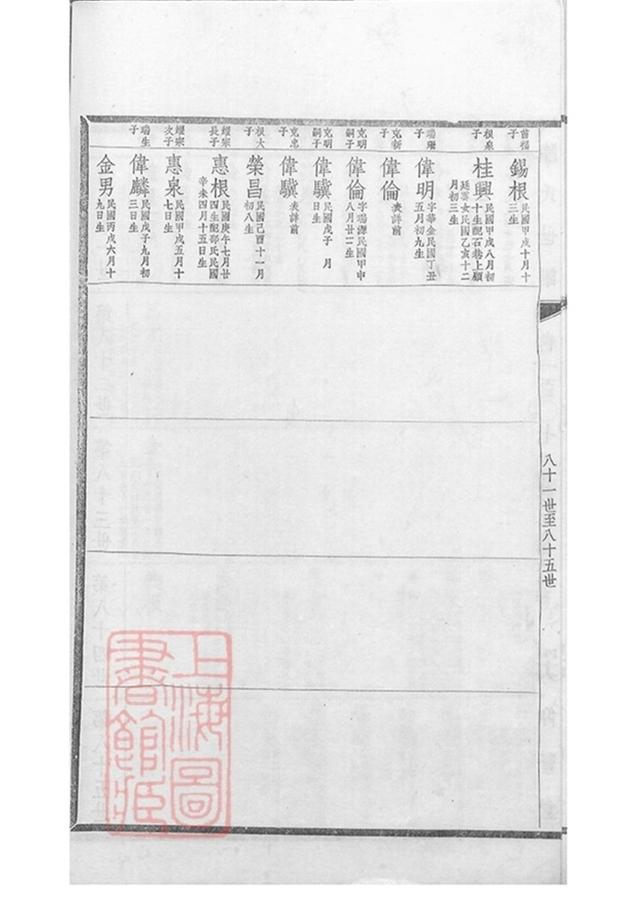 苗福子
錫根 民國甲戌十月十三生
根泉子
桂興 民國甲戌八月初十生配石巷上顧廷雲女民國乙亥十二月初三生
瑞珊子
偉明 字華金民國丁丑五月初九生
克新子
偉倫 表詳前
克明嗣子
偉倫 字瑞源民國甲申八月廿二生
克明嗣子
偉驥 民國戊子 月 日生
克忠子
偉驥 表詳前
根大子
榮昌 民國己酉十一月初八生
耀宗長子
惠根 民國庚午七月廿四生配邵氏民國辛未四月十五日生
耀宗次子
惠泉 民國甲戌五月十七日生
瑞生子
偉麟 民國戊子九月初三日生
金男 民國丙戌六月十九日生
八十一世至八十五世
上海圖書館藏